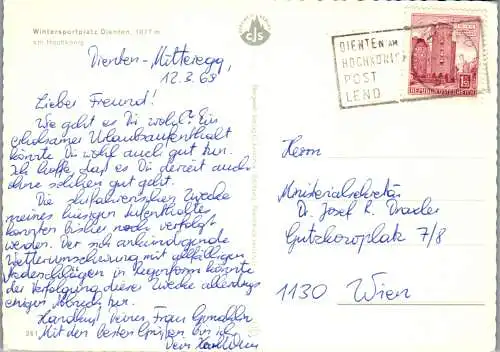 Wintersportplatz Dienten, 1071 m
am Hochkönig
cJs
DIENTEN AM
HOCHKÖNIG
POST
LEND
REPUBLIK ÖSTERREICH
Dienten-Mitteregg,
12.3.68
Lieber Freund!
Wie geht es Dir wohl? Ein
erholsamer Urlaubsaufenthalt
könnte Dir wohl auch gut tun.
Ich hoffe, daß es Dir derzeit auch
ohne solchen gut geht.
Die skifahrerischen Zwecke
meines hiesigen Aufenthaltes
konnten bisher noch verfolgt
werden. Der sich ankündigende
Wetterumschwung mit allfälligen
Niederschlägen in Regenform könnte
der Verfolgung dieser Zwecke allerdings
einigen Abbruch tun.
Handkuß Deiner Frau Gemahlin
Mit den besten Grüßen bin ich
Dein
Herrn
Ministerialsekretär
Dr. Josef R. Draxler
Gutzkowplatz 7/8
1130 Wien